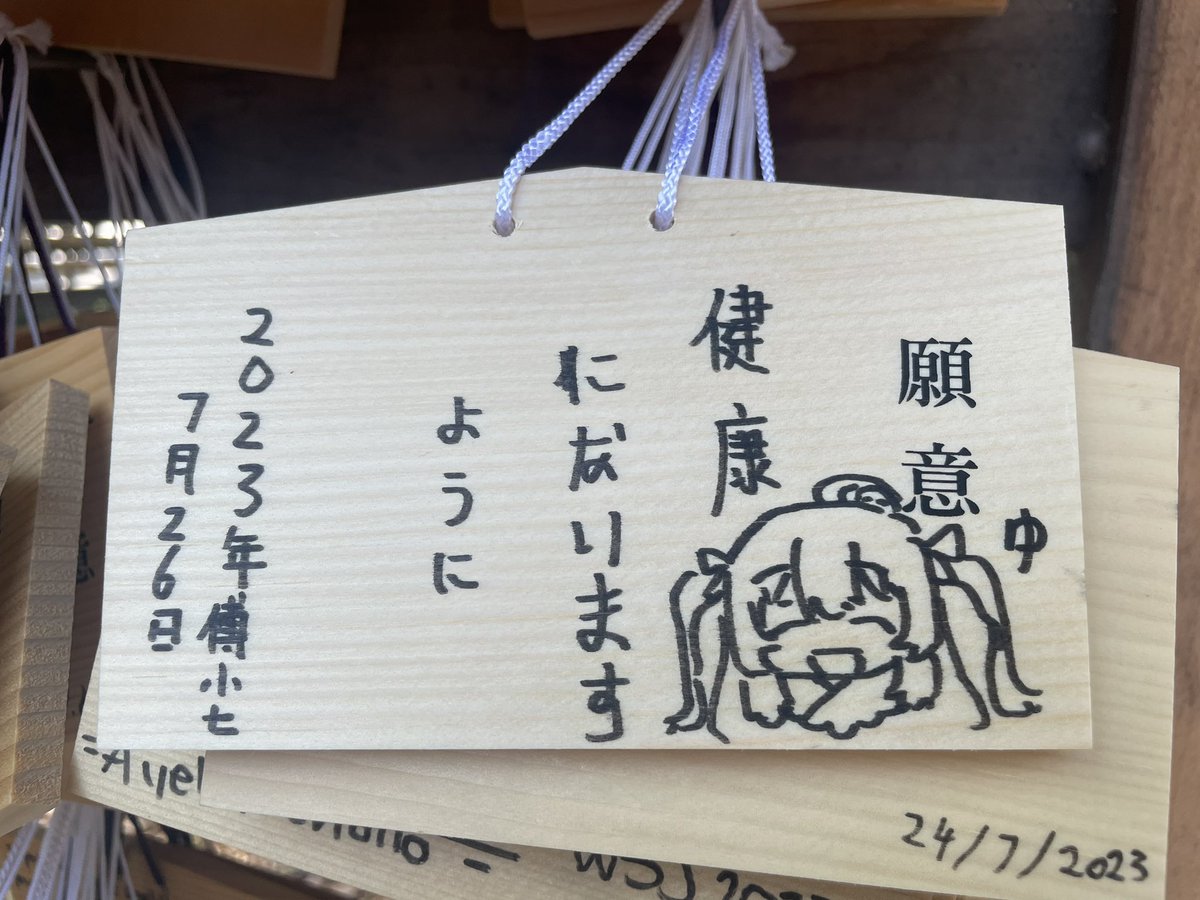 願意
ゆ
健康
になります
ように
2023年傅小七
7月26日
24/7/2023